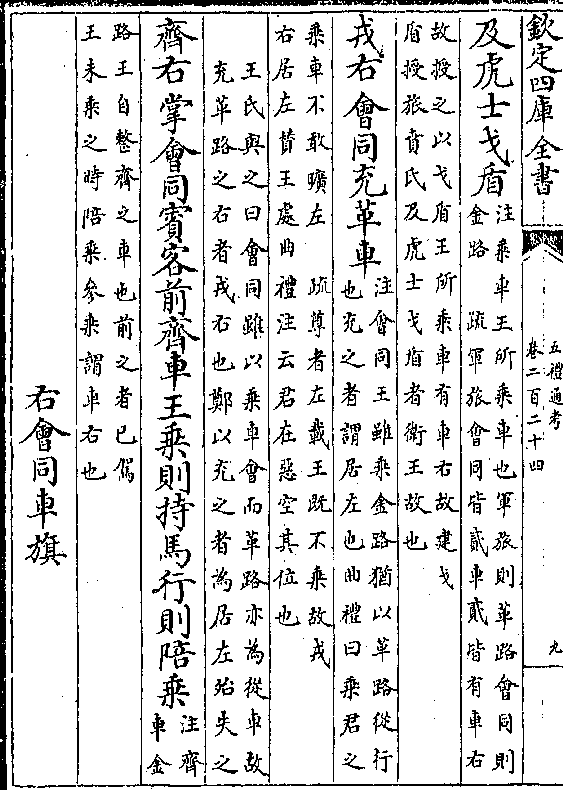 欽定四庫全書
五禮通考
卷二百二十四
九
及虎士戈盾
注乘車王所乘車也軍旅則革路會同則
金路　疏軍旅會同皆貳車貳皆有車右
故授之以戈盾王所乘車有車右故建戈
盾授旅賁氏及虎士戈盾者衛王故也
戎右會同充革車
注會同王雖乘金路猶以革路從行
也充之者謂居左也曲禮曰乘君之
乘車不敢曠左　疏尊者左載王既不乘故戎
右居左昔王處曲禮注云君在惡空其位也
王氏與之曰會同雖以乘車會而革路亦為從車故
充革路之右者戎右也鄭以充之者為居左殆失之
齊右掌會同賓客前齊車王乘則持馬行則陪乘
注齊
車金
路王自整齊之車也前之者已駕
王未乘之時陪乘參乘謂車右也
右會同車旗